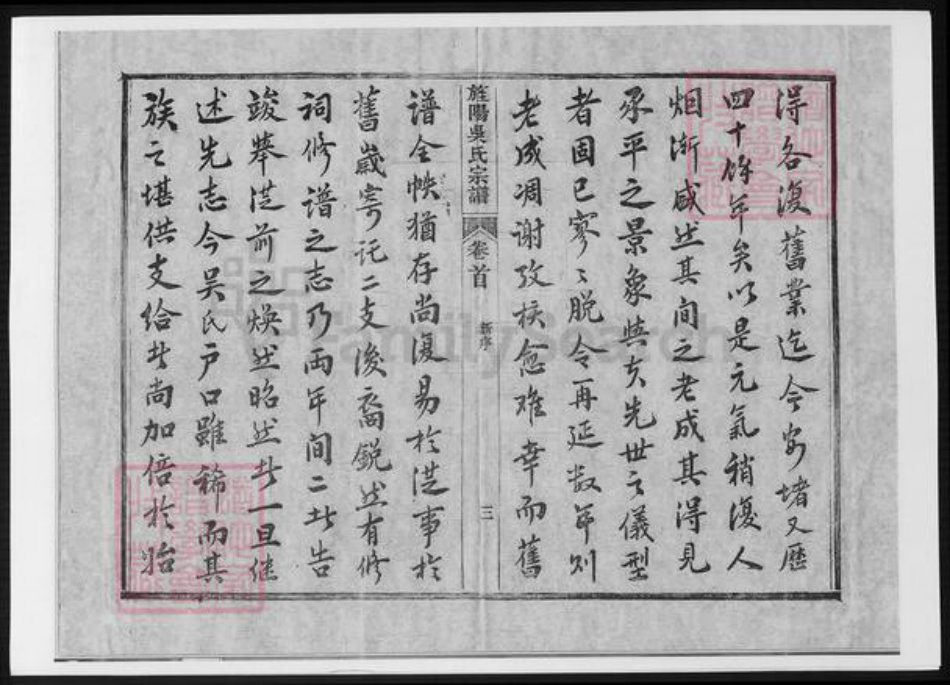 得各復舊業迄今安堵又歷
四十餘年矣以是元氣稍復人
烟漸盛然其間之老成其得見
承平之景象與夫先世之儀型
者固已寥〻脱令再延数年則
老成凋謝攷核愈难幸而舊
旌陽吳氏宗譜 卷首 新序 三
譜全帙猶存尚復易於從事於
舊歲寄託二支後裔銳然有修
祠修譜之志乃兩年间二者告
竣舉從前之煥然昭然者一旦继
述先志今吳氏户口雖稀而其
族之堪供支给者尚加倍於始
FamilySearch